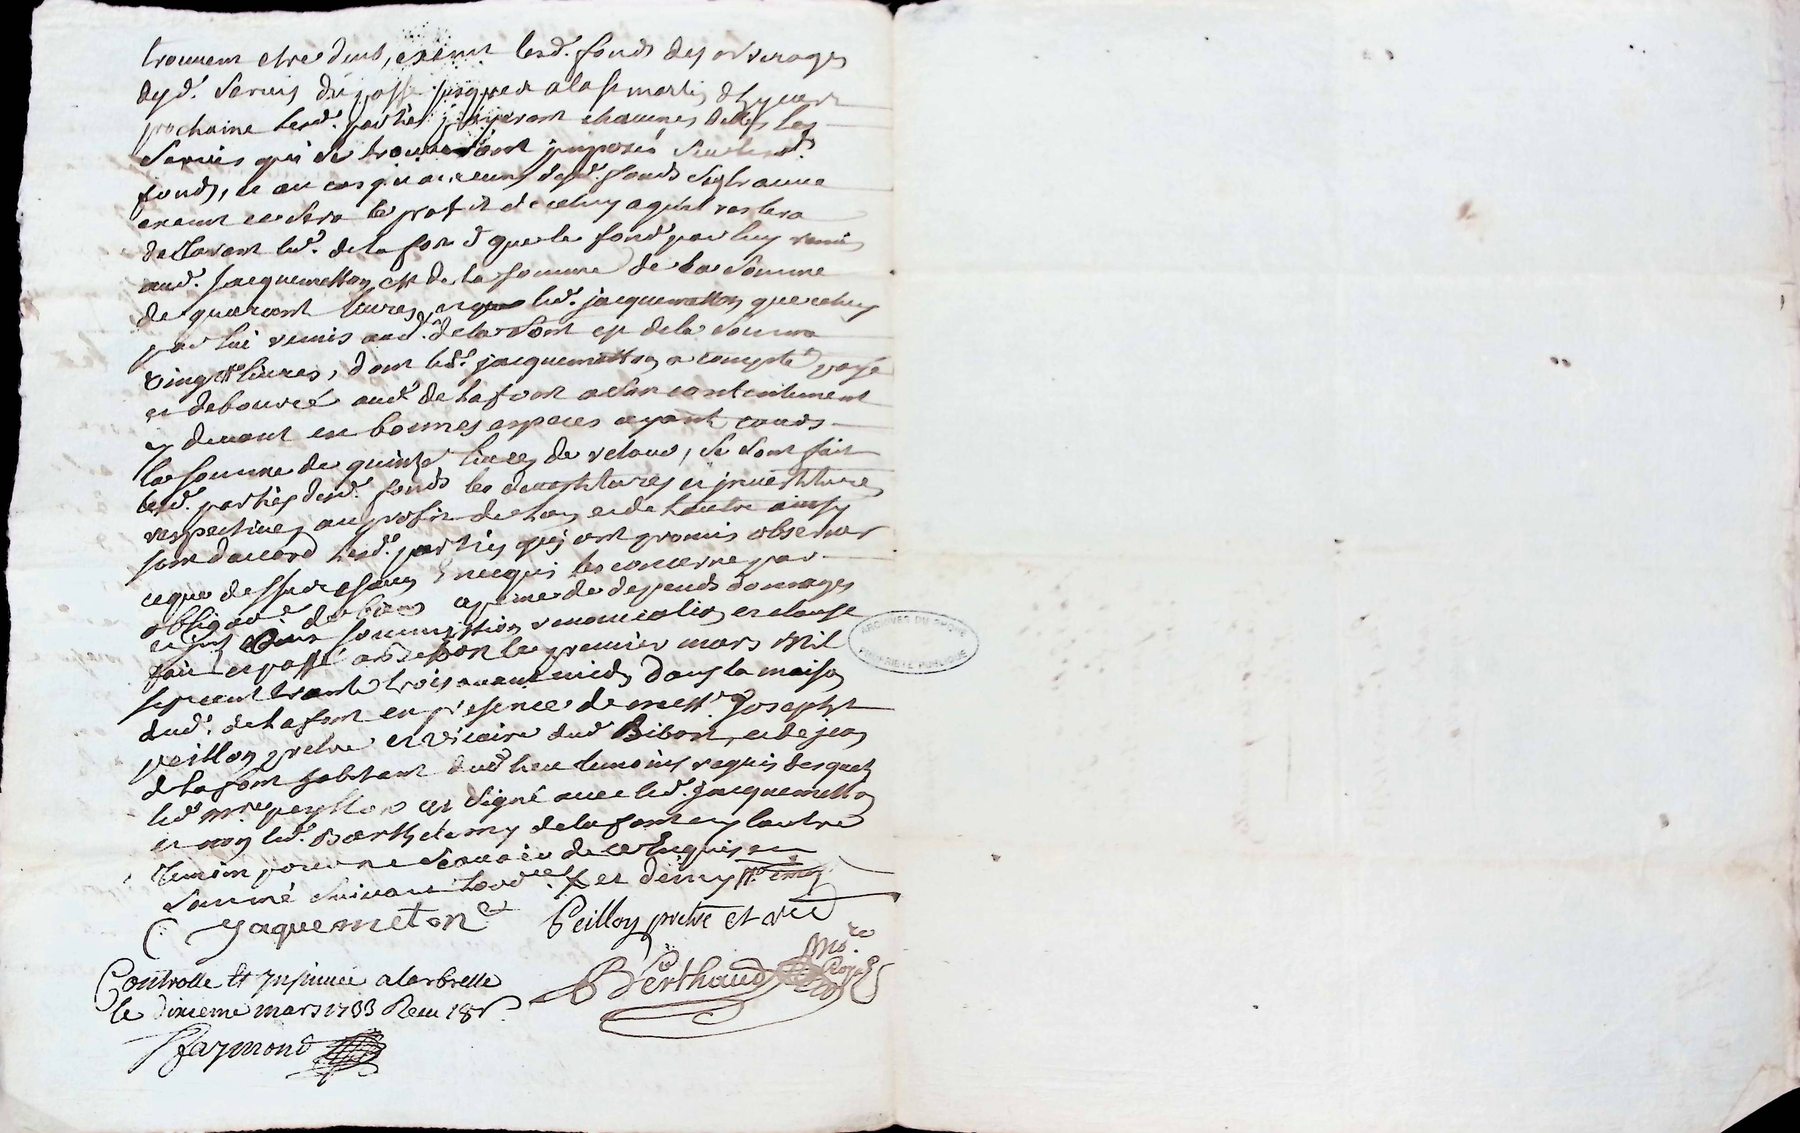 trouvent etre deub, exempt lesd. fonds des arrerages
desd. servis du passé jusques a la st martin dhyvert
prochaine lesd. parties payeront chacunes delles les
servis qui se trouveront imposés sur lesd.
fonds, et au cas qu'aucuns desd. fonds se trouve
exempt ce sera le profit de celuy a qui il restera
declarant led. de la font que le fond par luy remis
aud. Jacquemetton est de la somme de la somme
de quarant livres, et led. jacquemetton que celuy
par lui remis aud. de la font est de la somme
vingt livres, dont led. jacquemetton a compté payé
et debourcé aud. de la font a son contentement
cy devant en bonnes especes ayant cours
la somme de quinze livres de retour, se sont fait
lesd. parties desd. fonds les devestitures et investitures
respectives au profit de lun et de lautre ainsy
sont daccord lesd. parties qui ont promis observer
ceque dessus chacun en ce qui les concerne par
obligaon de biens a peine de despends dommages
et int. soumission renonciation et clause
fait et passé a Bibost le premier mars mil
sept cent trante trois avant midy dans la maison
dud. de la font en presence de mess. Joseph
peillon pretre et vicaire dud Bibost, et de jean
de la font habitant dud lieu temoins requis desquels
led. mre peyllon a signé avec led. Jacquemetton
et non led. Barthelemy de la font ny lautre
temoin pour ne sçavoir de ce enquis et
sommé suivant lord.ce et demy
Jaquemeton Peillon pretre et vic
Berthaud no.re Royal
Controllé et Insinué a larbresle
le dixieme mars 1733 Receu 18s
faymond
ARCHIVES DU RHONE
PROPRIETE PUBLIQUE